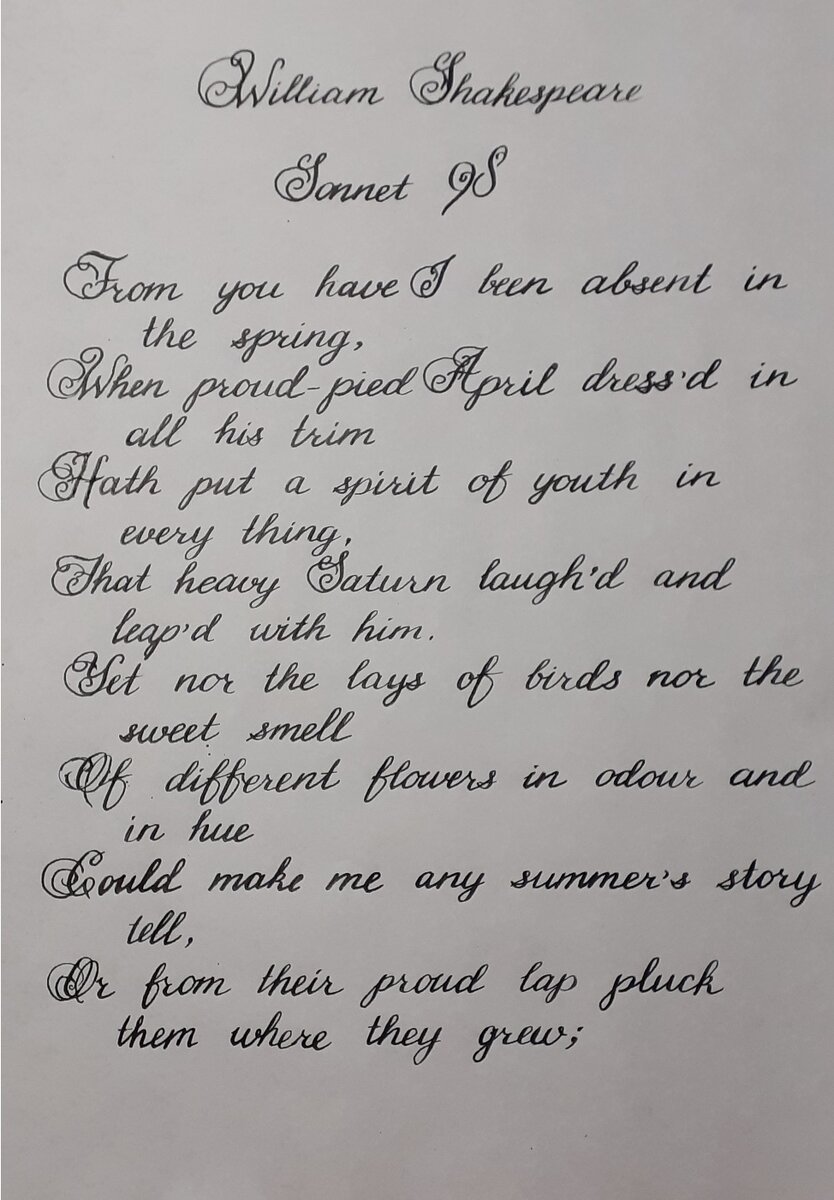 William Shakespeare
Sonnet 98
From you have I been absent in
the spring,
When proud-pied April dress'd in
all his trim
Hath put a spirit of youth in
every thing,
That heavy Saturn laugh'd and
leap'd with him.
Yet nor the lays of birds nor the
sweet smell
Of different flowers in odour and
in hue
Could make me any summer's story
tell,
Or from their proud lap pluck
them where they grew;